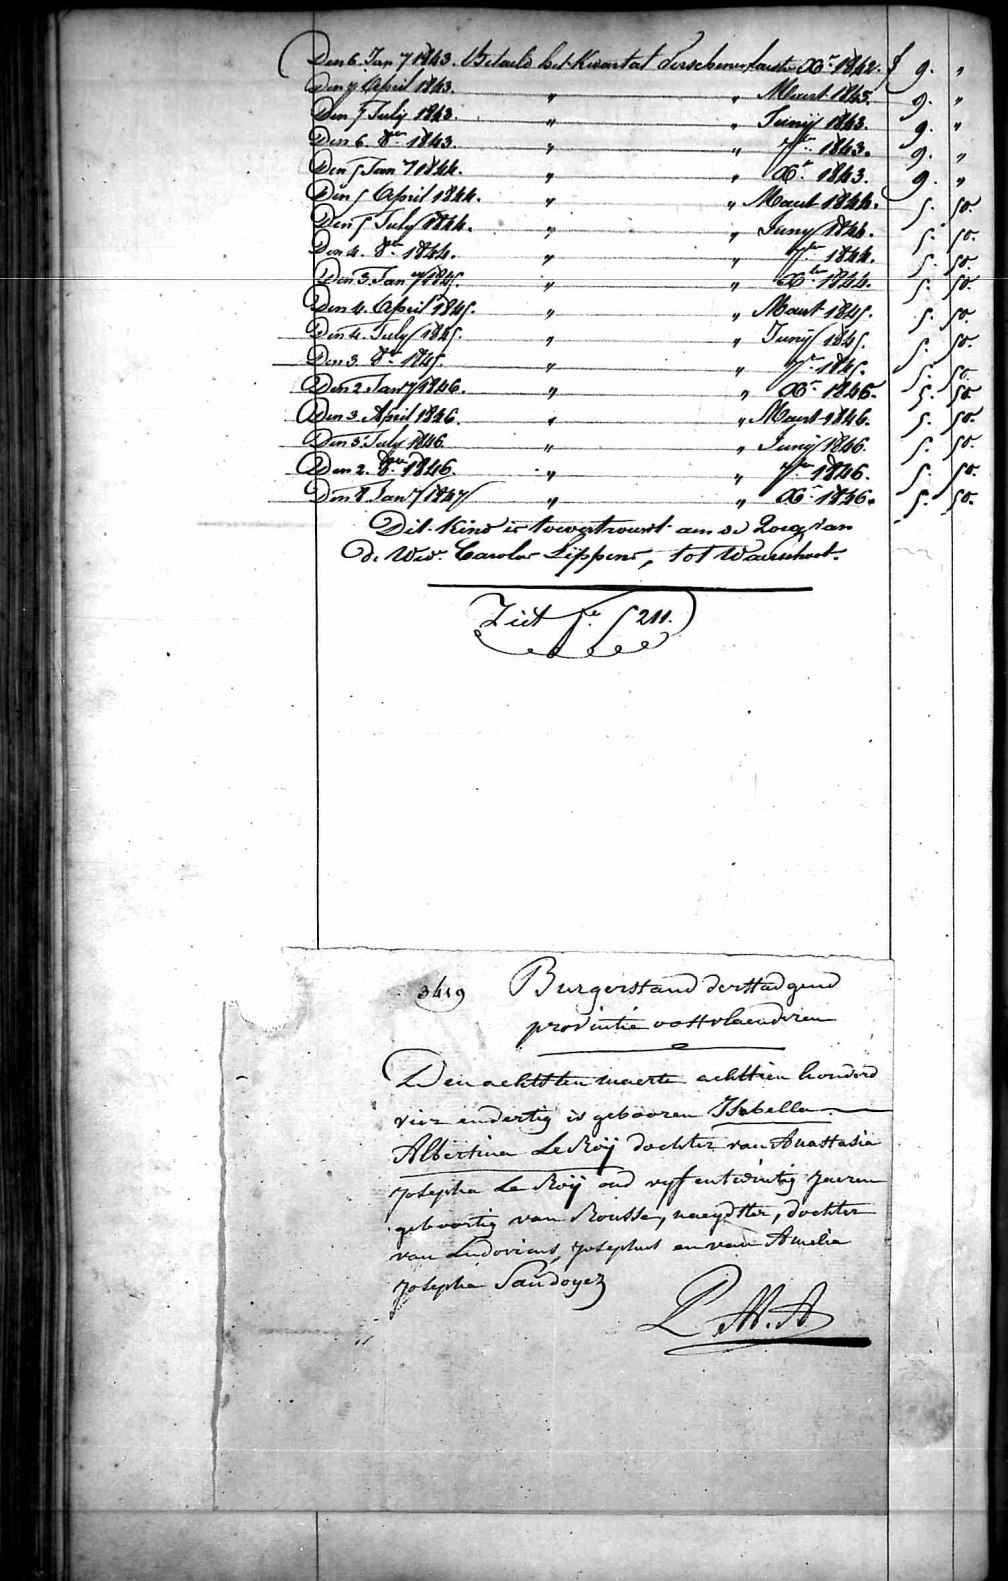 Den 6. Jan y 1843. Betaeld het Kwartal Verschenen laeste Xr 1842. f 9. "
Den 7 April 1843. " " Maert 1843. 9. "
Den 7 July 1843. " " Juny 1843. 9. "
Den 6. 8er 1843. " " 7er 1843. 9. "
Den 5 Jan y 1844. " " Xr 1843. 9. "
Den 5 April 1844. " " Maert 1844. 5. 50.
Den 5 July 1844. " " Juny 1844. 5. 50.
Den 4. 8er 1844. " " 7er 1844. 5. 50.
Den 3. Jan y 1845. " " Xr 1844. 5. 50.
Den 4. April 1845. " " Maert 1845. 5. 50.
Den 4. July 1845. " " Juny 1845. 5. 50.
Den 3. 8er 1845. " " 7r 1845. 5. 50.
Den 2 Jan y 1846. " " Xr 1845. 5. 50.
Den 3. April 1846. " " Maert 1846. 5. 50.
Den 3. July 1846. " " Juny 1846. 5. 50.
Den 2. 8er 1846. " " 7er 1846. 5. 50.
Den 8 Jan y 1847 " " Xr 1846. 5. 50.
Dit Kind is toevertrouwt aen de Zorg van
de Wed. Carolus Lippens, tot Waerschoot.
Ziet fe 5211.
3419 Burgerstand der stad gend
provintie oostvlaenderen
Den achtsten maerte achttien honderd
vier en dertig is gebooren Isabella
Albertina Le Roÿ dochter van Anastasia
Josepha Le Roÿ oud vyf en twintig jaeren
geboortig van Rousse, naeydster, dochter
van Ludovicus, Josephus en van Amelia
Josepha Sandoyez